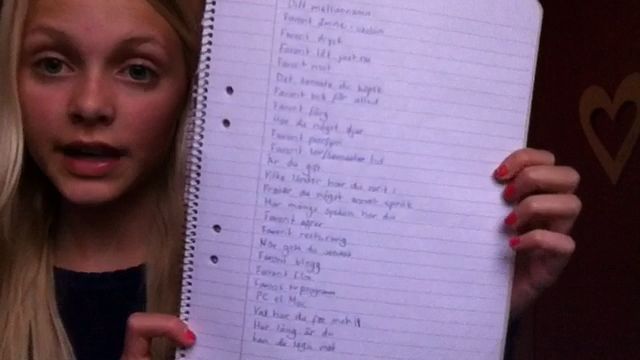 Ditt mellannamn
Favorit ämne i skolan
Favorit dryck
Favorit låt just nu
Favorit mat
Det senaste du köpte
Favorit bok för alltid
Favorit färg
Har du något djur
Favorit parfym
Favorit
Är du gift
Vilka länder har du varit i
Pratar du något annat språk
Hur många syskon har du
Favorit affär
Favorit restaurang
När du
Favorit blogg
Favorit film
Favorit tv program
PC el Mac
Vad har du för mobil
Hur lång är du
kan du laga mat